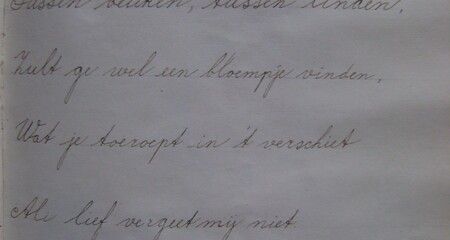 Tussen beuken, tussen linden,
Zult ge wel een bloempje vinden,
Wat je toeroept in 't verschiet
Ach lief vergeet mij niet.